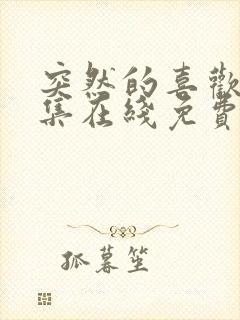 突然的喜歡
集在綫免費
狐暮笙